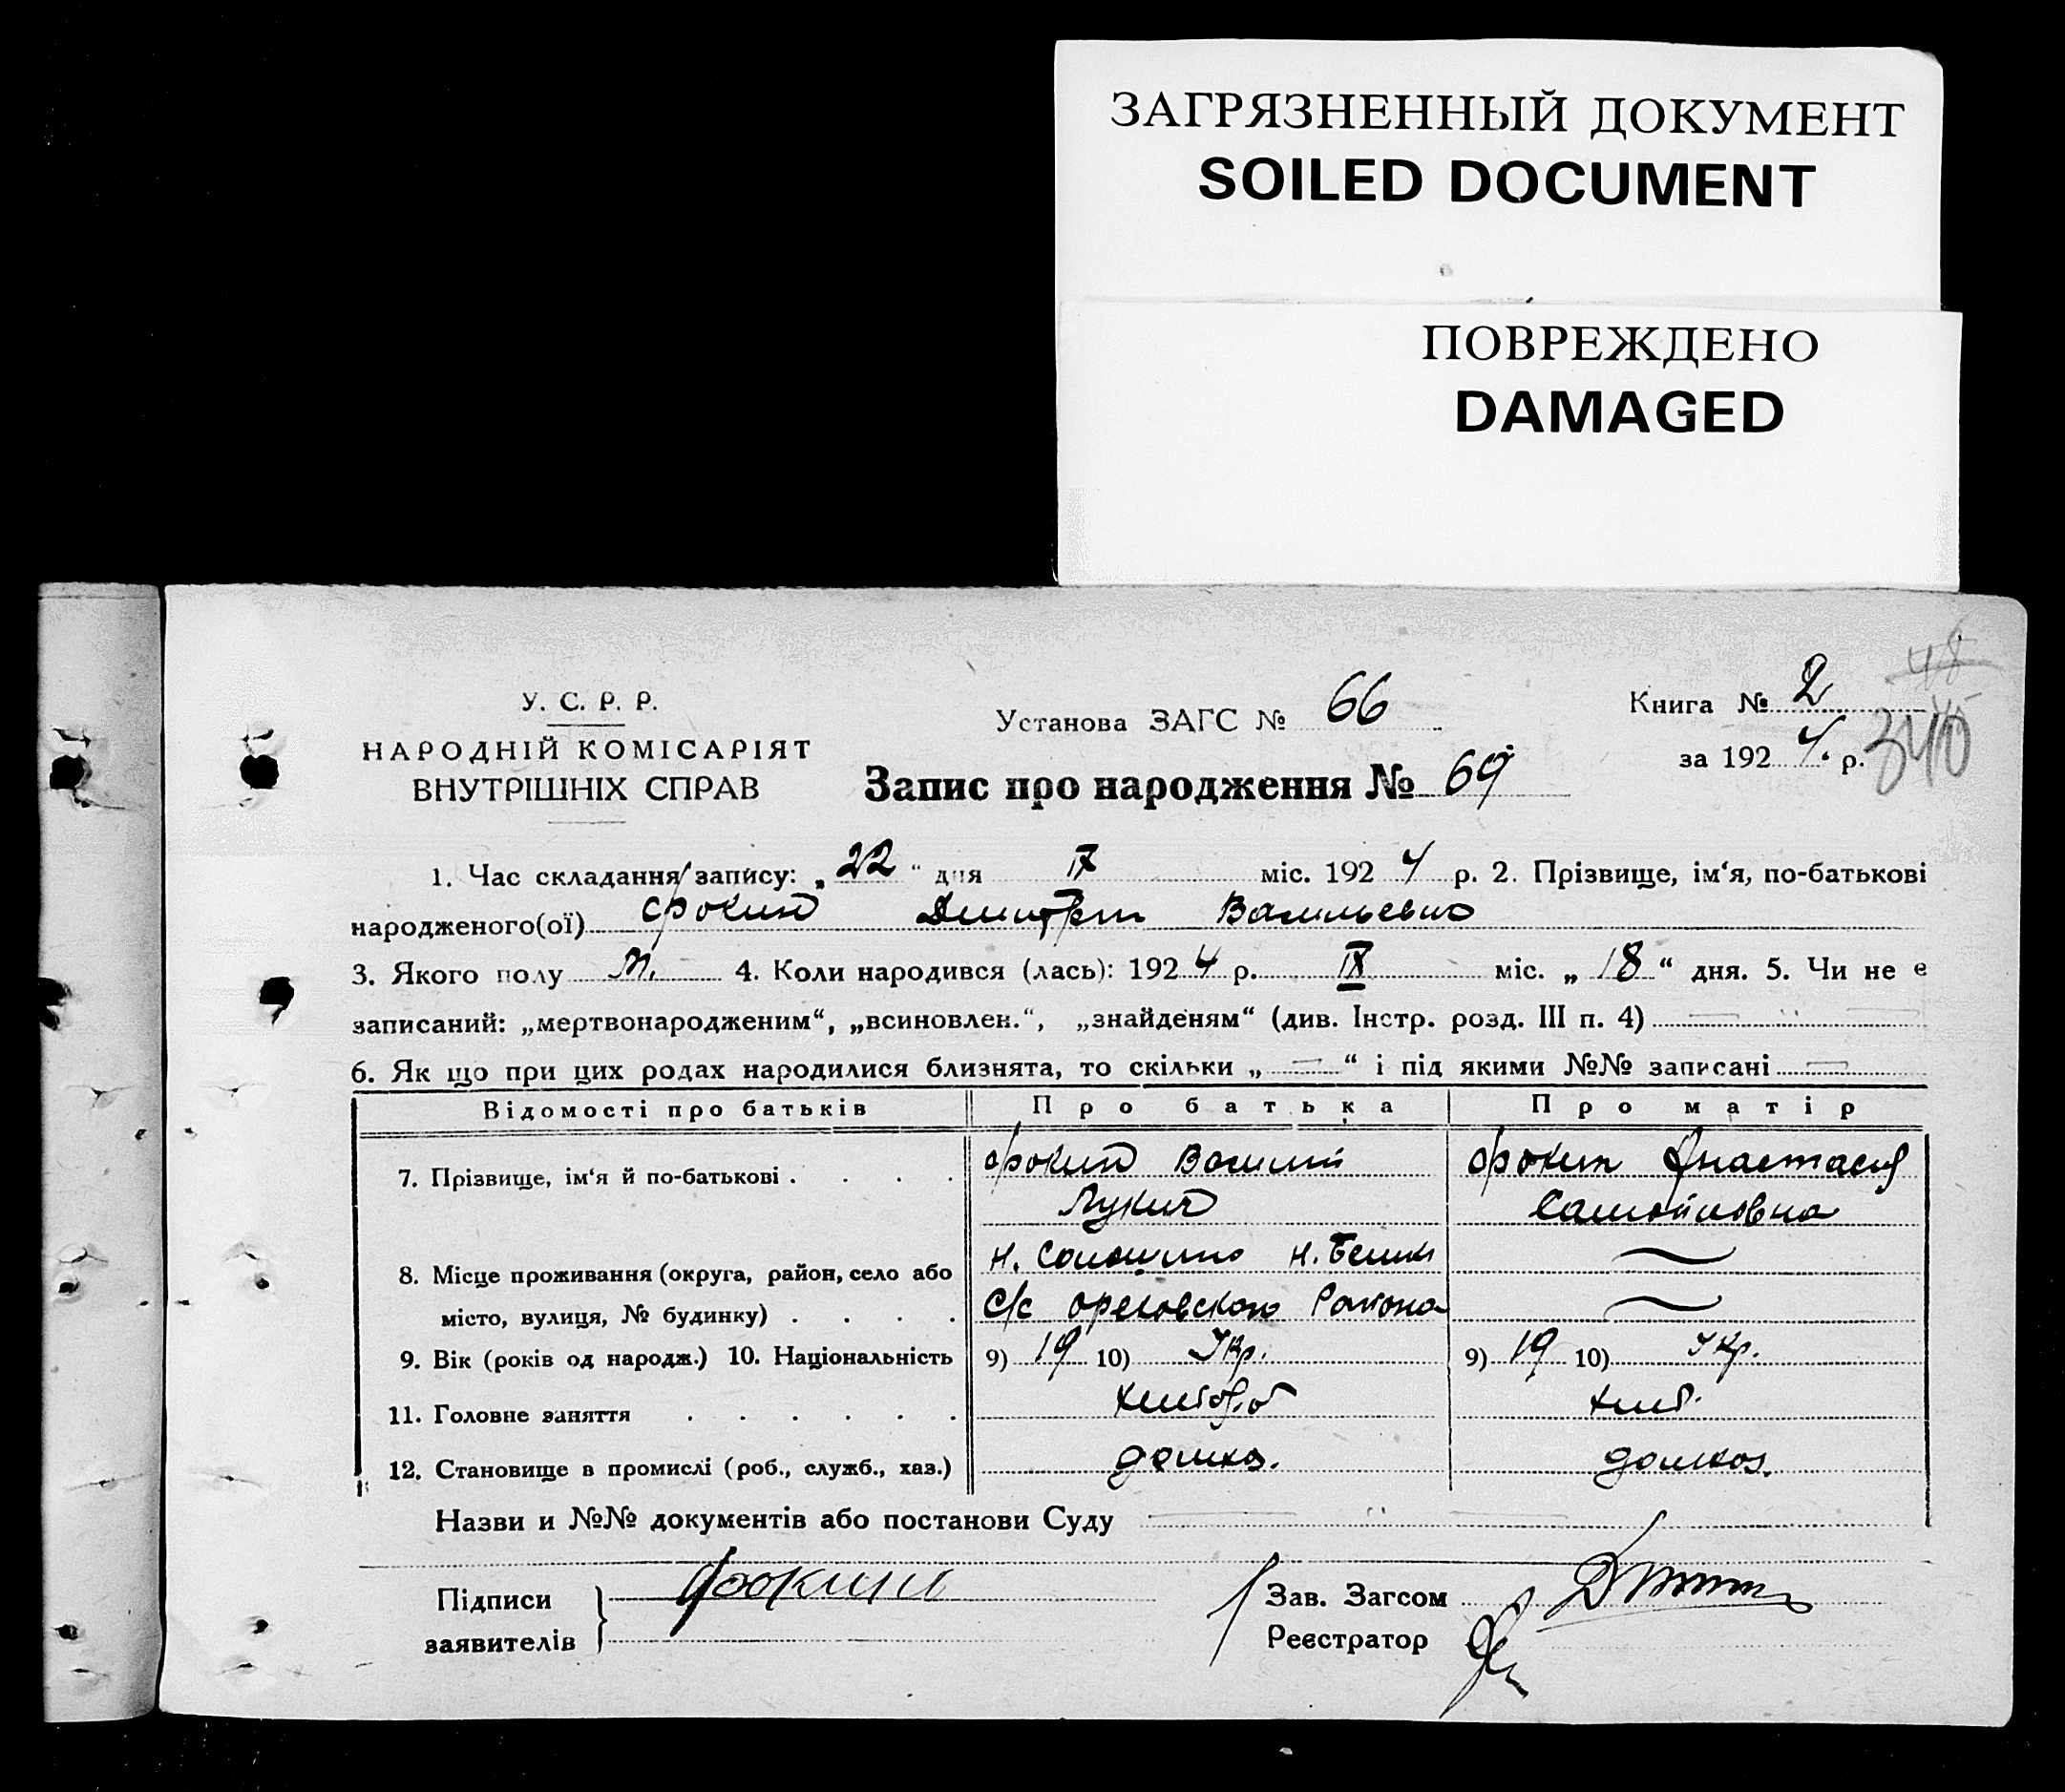 ЗАГРЯЗНЕННЫЙ ДОКУМЕНТ
SOILED DOCUMENT
ПОВРЕЖДЕНО
DAMAGED
У. С. Р. Р.
НАРОДНІЙ КОМІСАРІЯТ
ВНУТРІШНІХ СПРАВ
Установа ЗАГС № 66
Запис про народження № 69
Книга № 2
за 1924 р.
48
340
1. Час складання запису: „22“ дня IX міс. 1924 р. 2. Прізвище, ім‘я, по-батькові
народженого(ої) Фокин Дмитрий Васильевич
3. Якого полу м. 4. Коли народився (лась): 1924 р. IX міс. „18“ дня. 5. Чи не є
записаний: „мертвонародженим“, „всиновлен.“, „знайденям“ (див. Інстр. розд. III п. 4) —
6. Як що при цих родах народилися близнята, то скільки „—“ і під якими №№ записані —
Відомості про батьків Про батька Про матір
7. Прізвище, ім‘я й по-батькові . . . . Фокин Василий Фокин Анастасия
Лукич Самойловна
8. Місце проживання (округа, район, село або н. —
місто, вулиця, № будинку) . . . . С/с Ореховского Района —
9. Вік (років од народж.) 10. Національність 9) 19 10) Укр. 9) 19 10) Укр.
11. Головне заняття . . . . . . хлебоб хлеб.
12. Становище в промислі (роб., служб., хаз.) домхоз. домхоз.
Назви и №№ документів або постанови Суду —
Підписи Фокин Зав. Загсом
заявителів Реєстратор